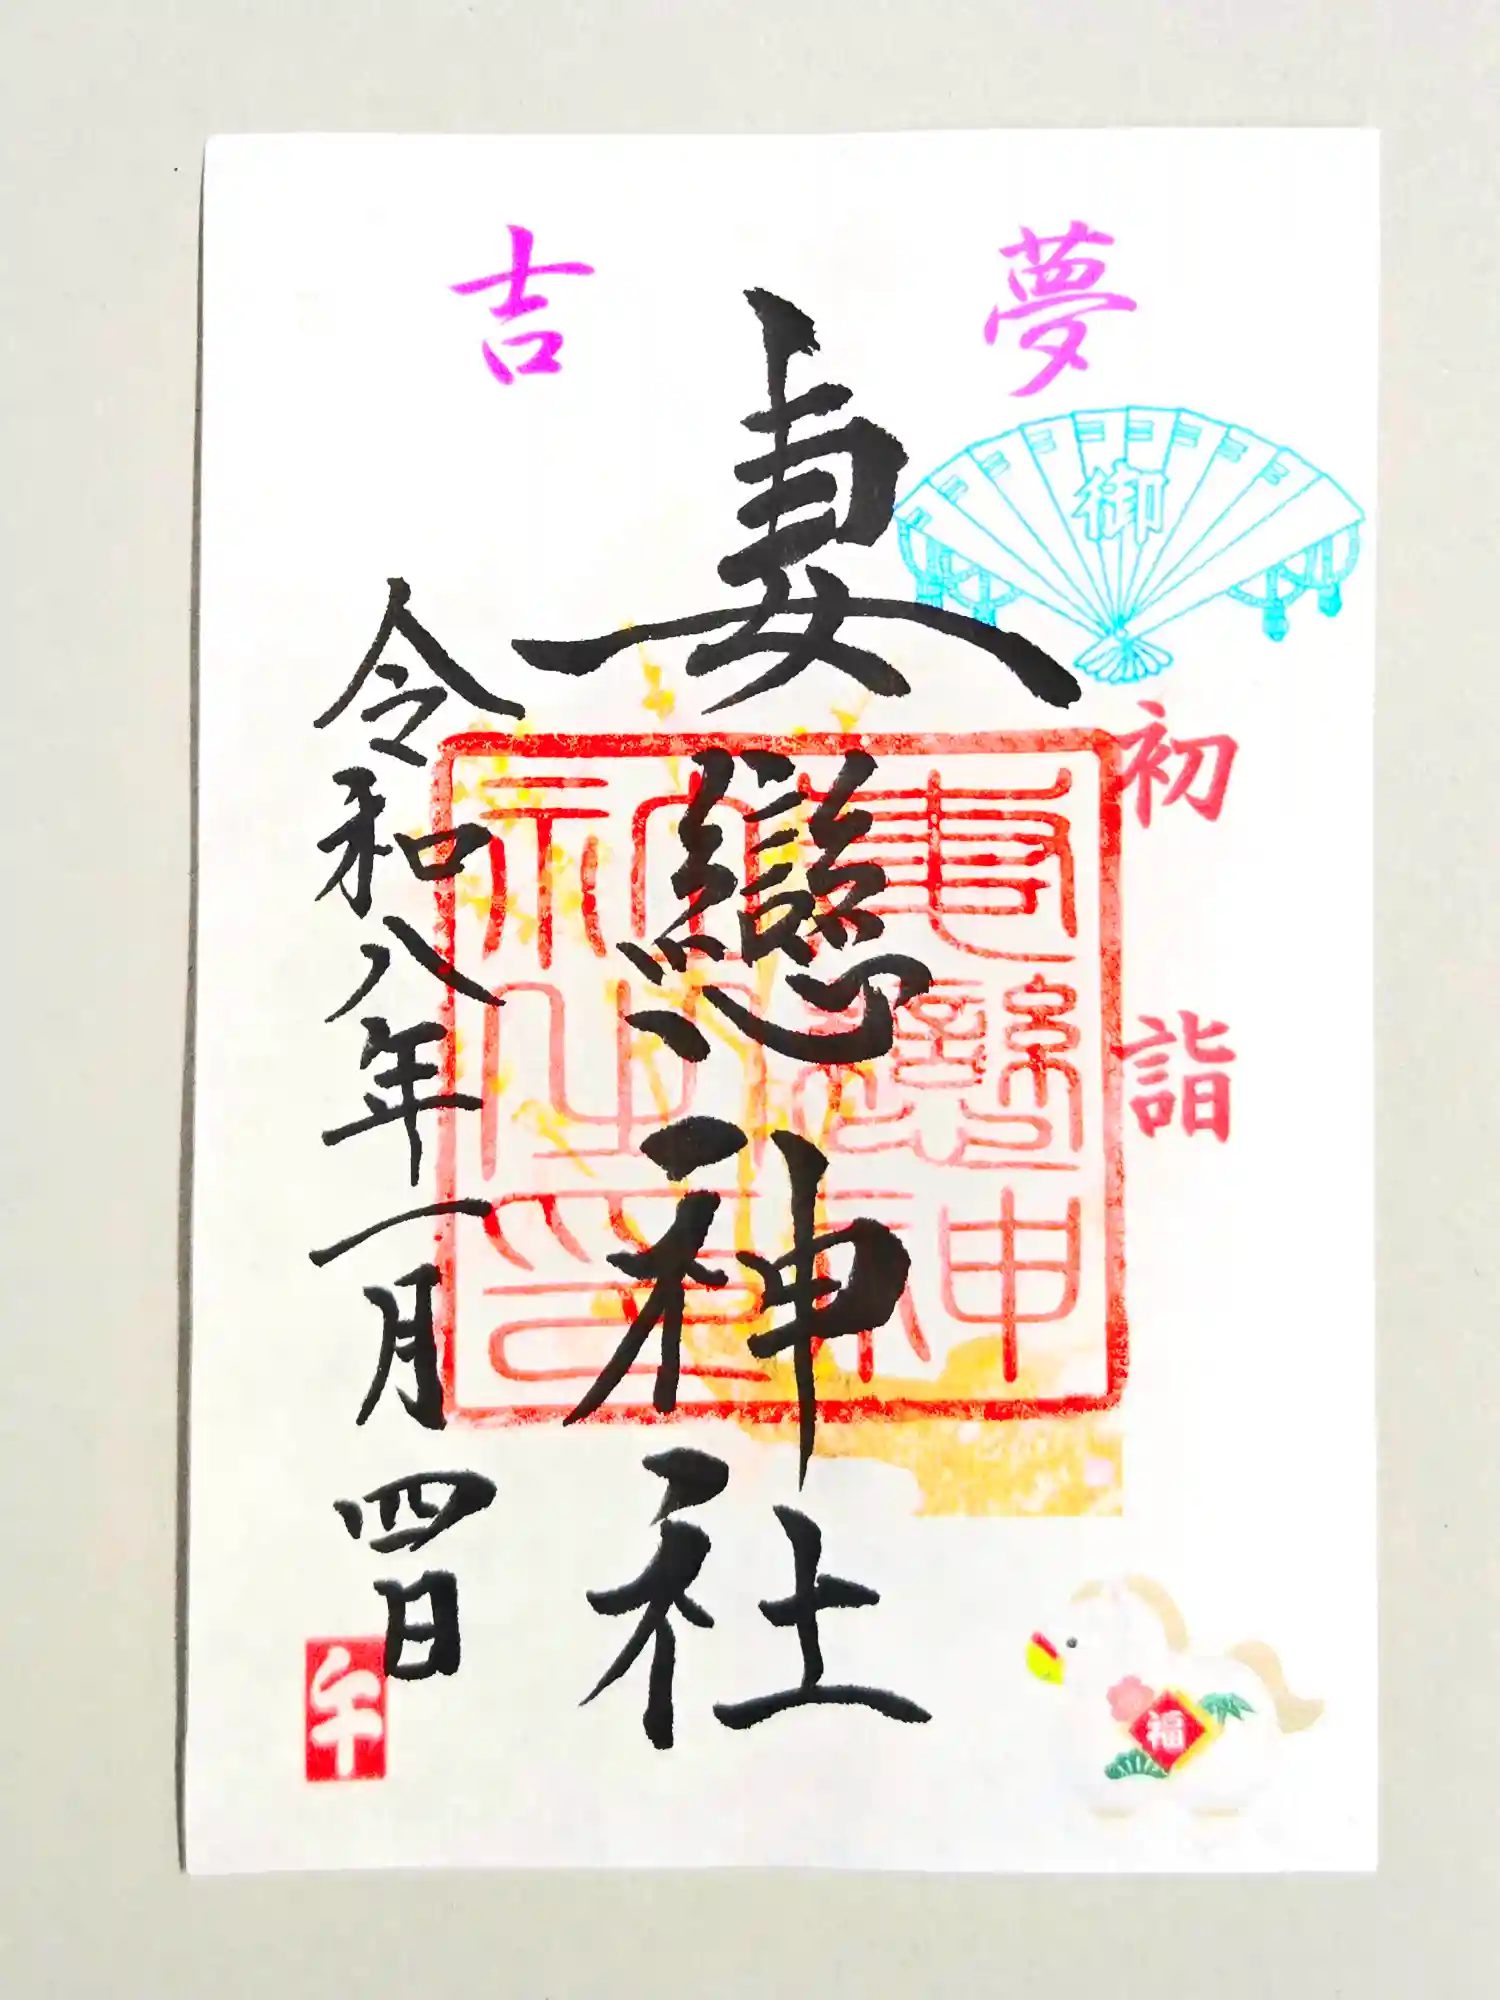 夢
吉
御
初詣
妻戀神社
妻戀神社神社之印
令和八年一月四日
午
福